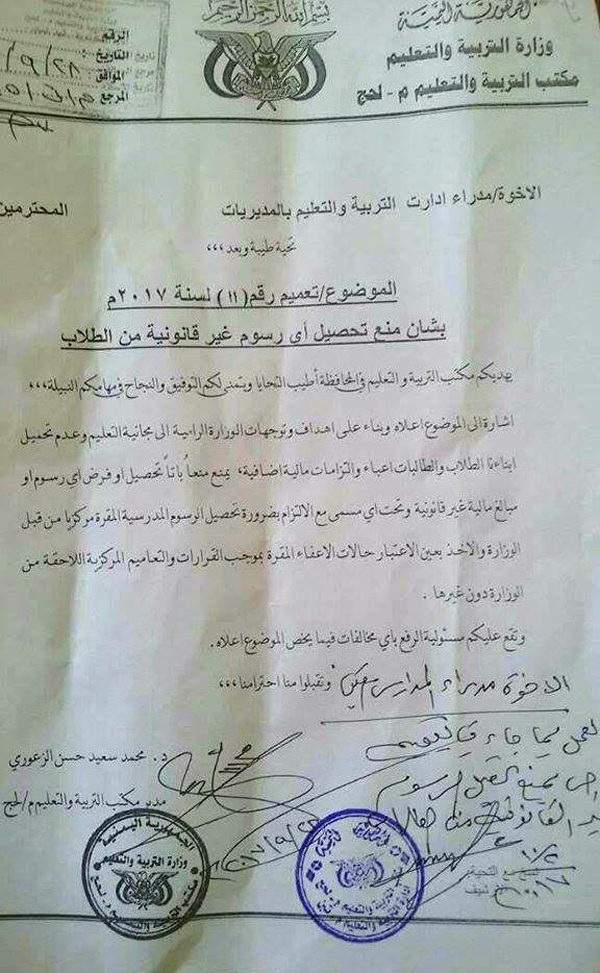 بسم الله الرحمن الرحيم
الجمهورية اليمنية
وزارة التربية والتعليم
مكتب التربية والتعليم م - لحج
الرقم
التاريخ : ٩/٢٨/
الموافق
المرجع
الاخوة/مدراء ادارت التربية والتعليم بالمديريات المحترمين
تحية طيبة وبعد ،،،
الموضوع/تعميم رقم(١١) لسنة ٢٠١٧م
بشان منع تحصيل أى رسوم غير قانونية من الطلاب
يهديكم مكتب التربية و التعليم في المحافظة أطيب التحايا ويتمنى لكم التوفيق والنجاح في مهامكم النبيلة ،،،
اشارة الى الموضوع اعلاه وبناء على اهداف وتوجهات الوزارة الرامية الى مجانية التعليم وعدم تحميل
ابناءنا الطلاب والطالبات اعباء والتزامات مالية اضافية، يمنع منعاً باتاً تحصيل او فرض اي رسوم او
مبالغ مالية غير قانونية وتحت اي مسمى مع الالتزام بضرورة تحصيل الرسوم المدرسية المقرة مركزيا من قبل
الوزارة والاخذ بعين الاعتبار حالات الاعفاء المقرة بموجب القرارات والتعاميم المركزية اللاحقة من
الوزارة دون غيرها .
وتقع عليكم مسئولية الرفع باي مخالفات فيما يخص الموضوع اعلاه .
وتقبلوا منا احترامنا ،،،
الاخوة مدراء المدارس
لعمل بما جاء في
د. محمد سعيد حسن الزعوري
مدير مكتب التربية والتعليم م/لحج
٢٠١٧/٩/٢٨
الجمهورية اليمنية
وزارة التربية والتعليم